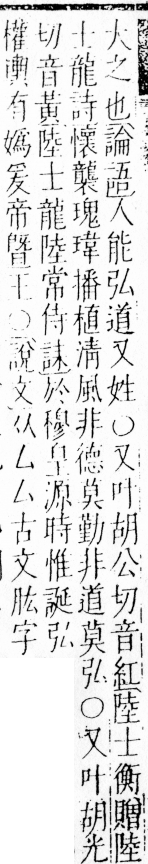 大之也論語人能弘道又姓○又叶胡公切音紅陸士衡贈陸
士龍詩懷襲瑰瑋播植清風非德莫勤非道莫弘○又叶胡光
切音黃陸士龍陸常侍誄於穆皇源時惟誕弘
權輿有媯爰帝曁王○說文从厶厶古文肱字